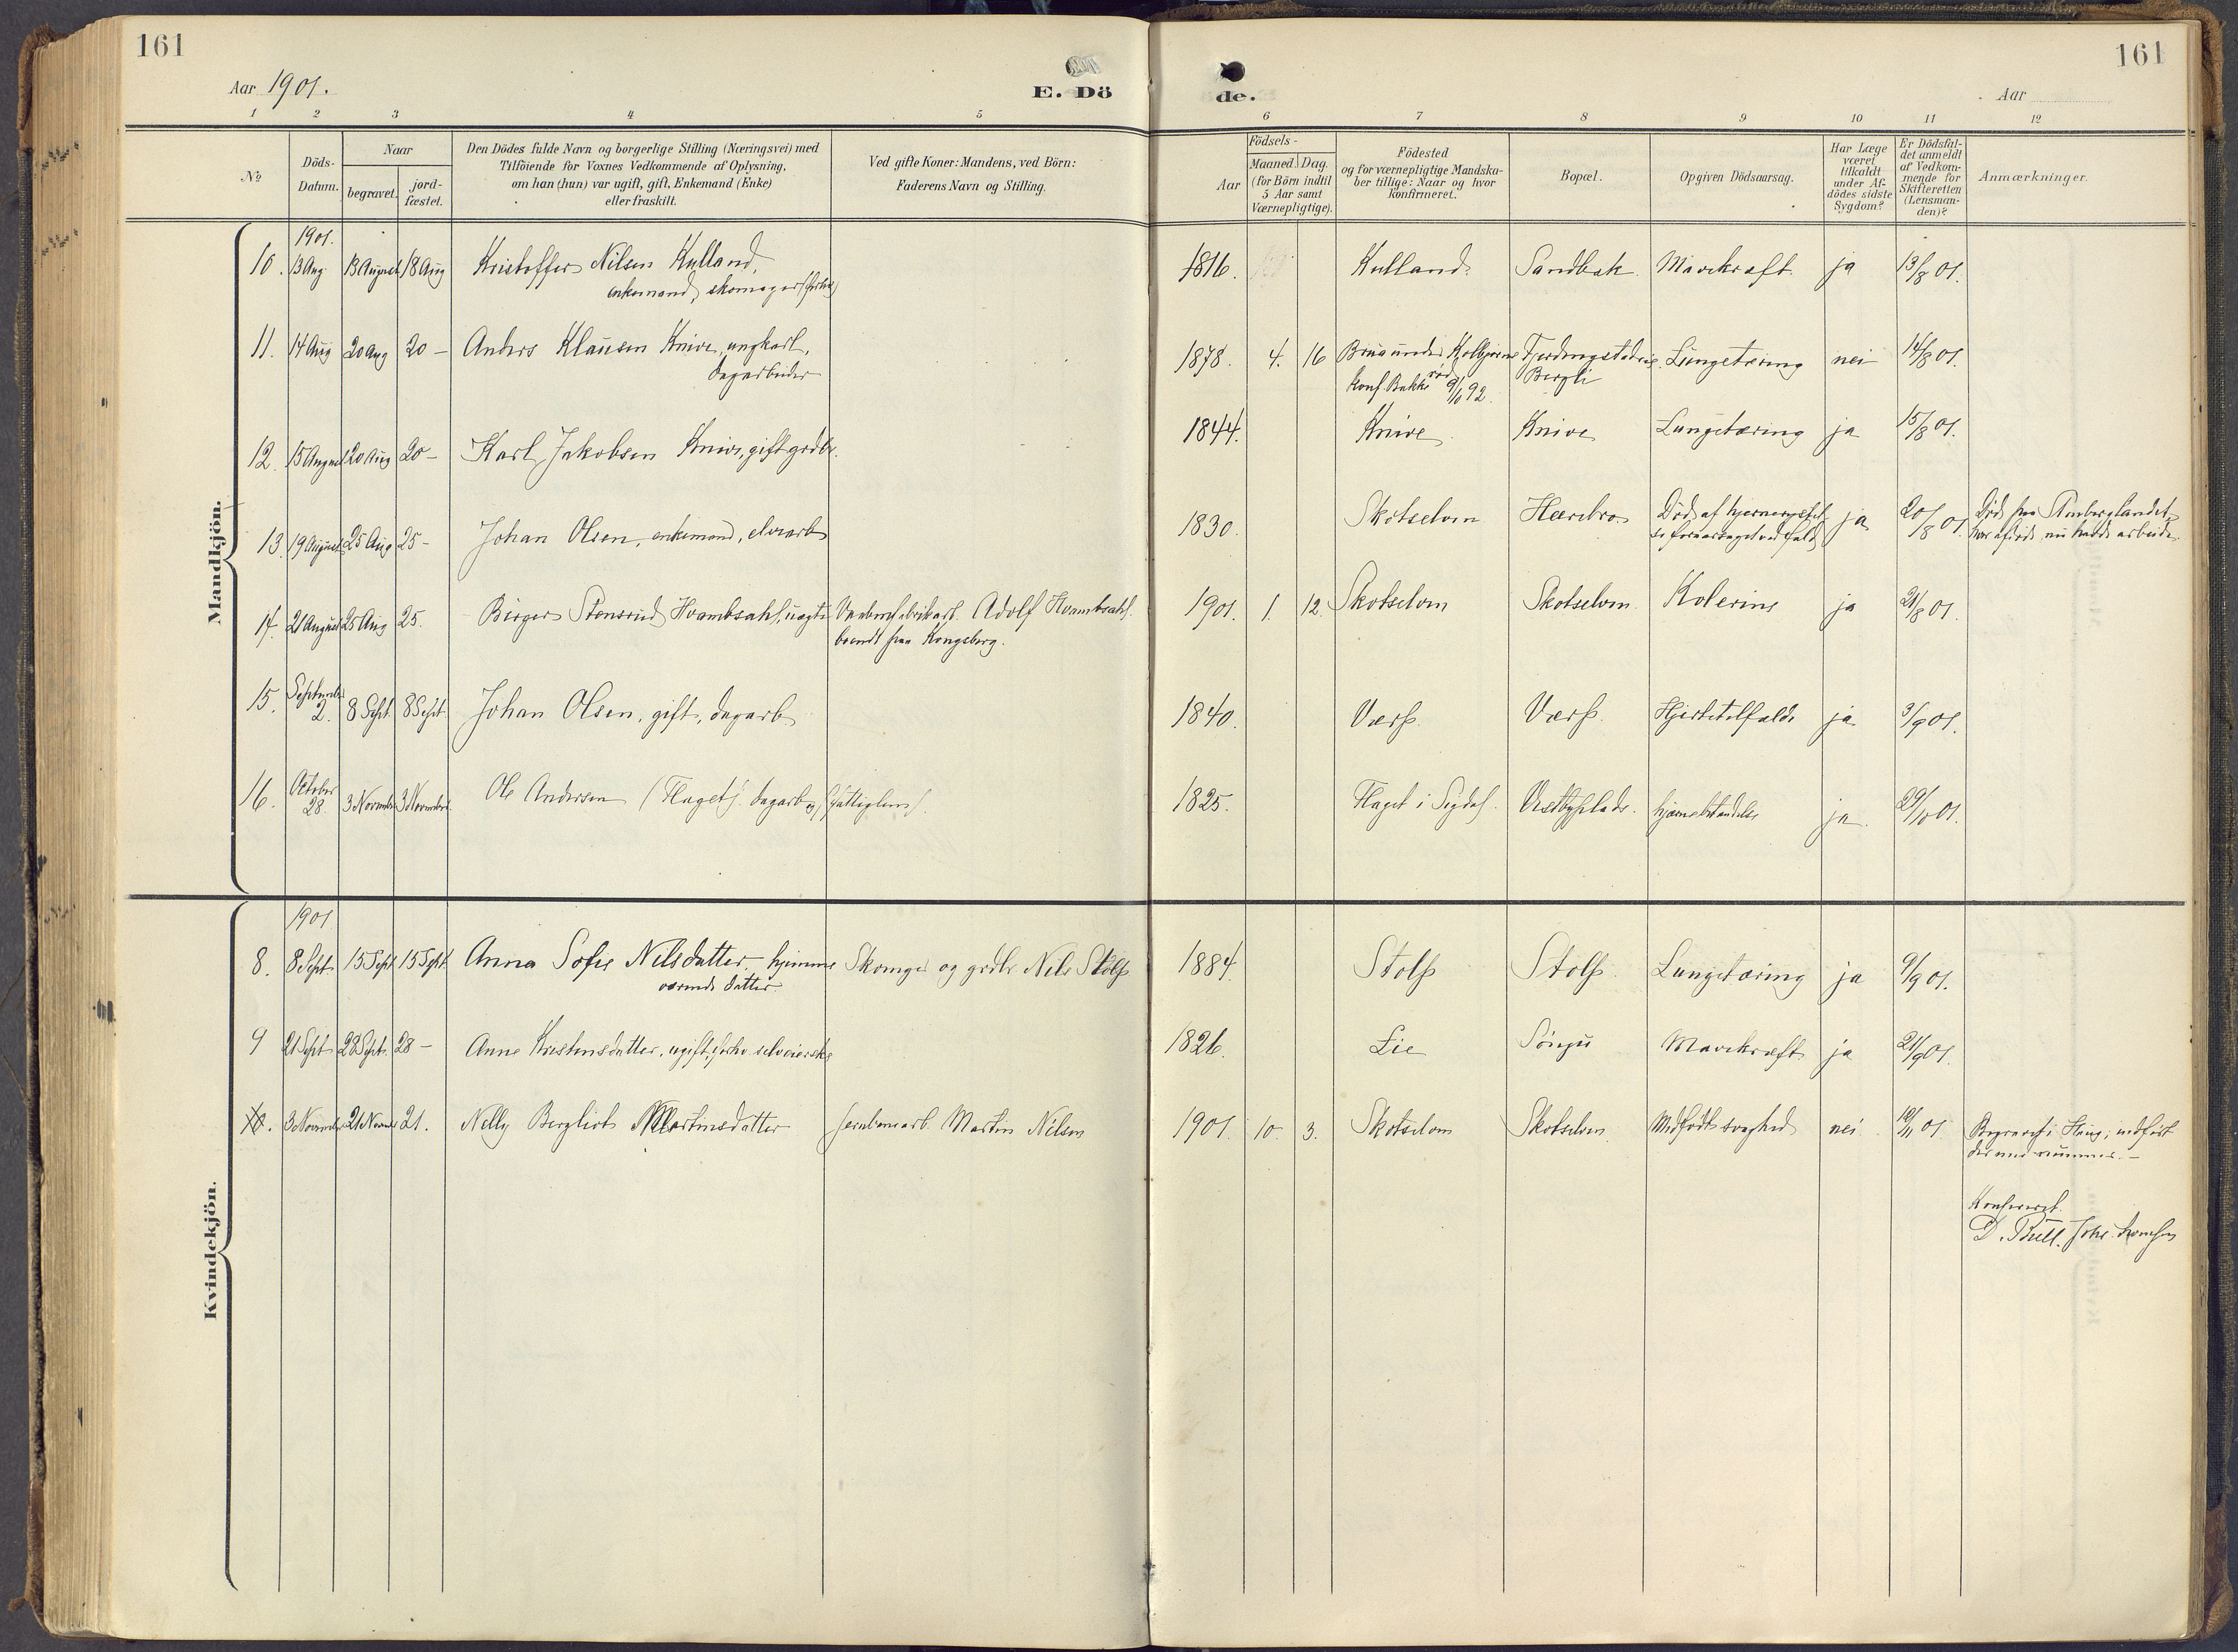 161
161
Aar 1901.
E. Dö
de.
Aar
1 2 3 4 5 6 7 8 9 10 11 12
No
Döds-
Datum.
Naar
begravet.
jord-
fæstet.
Den Dödes fulde Navn og borgerlige Stilling (Næringsvei) med
Tilföiende for Voxnes Vedkommende af Oplysning,
om han (hun) var ugift, gift, Enkemand (Enke)
eller fraskilt.
Ved gifte Koner: Mandens, ved Börn:
Faderens Navn og Stilling.
Födsels-
Aar
Maaned. Dag.
(for Börn indtil
5 Aar samt
Værnepligtige).
Födested
og for værnepligtige Mandska-
ber tillige: Naar og hvor
konfirmeret.
Bopæl.
Opgiven Dödsaarsag.
Har Læge
været
tilkaldt
under Af-
dödes sidste
Sygdom?
Er Dödsfal-
det anmeldt
af Vedkom-
mende for
Skifteretten
(Lensman-
den)?
Anmærkninger.
Mandkjön.
1901.
10. 13 Aug 13 August 18 Aug Kristoffer Nilsen Kulland, 1816. Kulland. Sandbak Mavekræft ja 13/8 01.
enkemand, skomager
11. 14 Aug 20 Aug 20 – Anders Klausen Knive, ungkarl, 1878. 4. 16 Lungetæring nei 14/8 01.
dagarbeider Konf. Bakke 9/10 92. Bergli
12. 15 August 20 Aug 20 – Karl Jakobsen Knive, gift grdbr. 1844. Knive Knive Lungetæring ja 15/8 01.
13. 19 August 25 Aug 25 – Johan Olsen, enkemand, elvearb 1830. Skotselven Hærebro Död af ja 20/8 01.
14. 21 August 25 Aug 25. Birger Stensrud Hvambsahl, uægte Adolf Hvambsahl. 1901. 1. 12. Skotselven Skotselven Kolerine ja 21/8 01.
boendt paa Kongsberg.
15. September 2. 8 Sept 8 Sept Johan Olsen, gift, dagarb 1840. Værp. Værp. Hjertetilfælde ja 3/9 01.
16. October 28. 3 November 3 November Ole Andersen (Flaget). dagarb og fattiglem. 1825. Flaget i Sigdal. Vestbyplads. hjernebetændelse ja 29/10 01.
Kvindekjön.
1901
8. 8 Sept 15 Sept 15 Sept Anna Sofie Nilsdatter hjemme Skomager og grdbr. Nils Stolp 1884. Stolp Stolp. Lungetæring ja 9/9 01.
værende datter
9 21 Sept 28 Sept. 28 – Anne Kristensdatter, ugift, forhv. selveierske 1826. Lie Mavekræft ja 21/9 01.
10. 3 November 21 November 21. Nelly Bergliot Martinsdatter Jernbanearb. Martin Nilsen 1901. 10. 3. Skotselven Skotselven Medfödt svaghed nei 10/11 01 Begravet i Haug; indfört
der med nummer. –
Konfereret.
D. Bull.